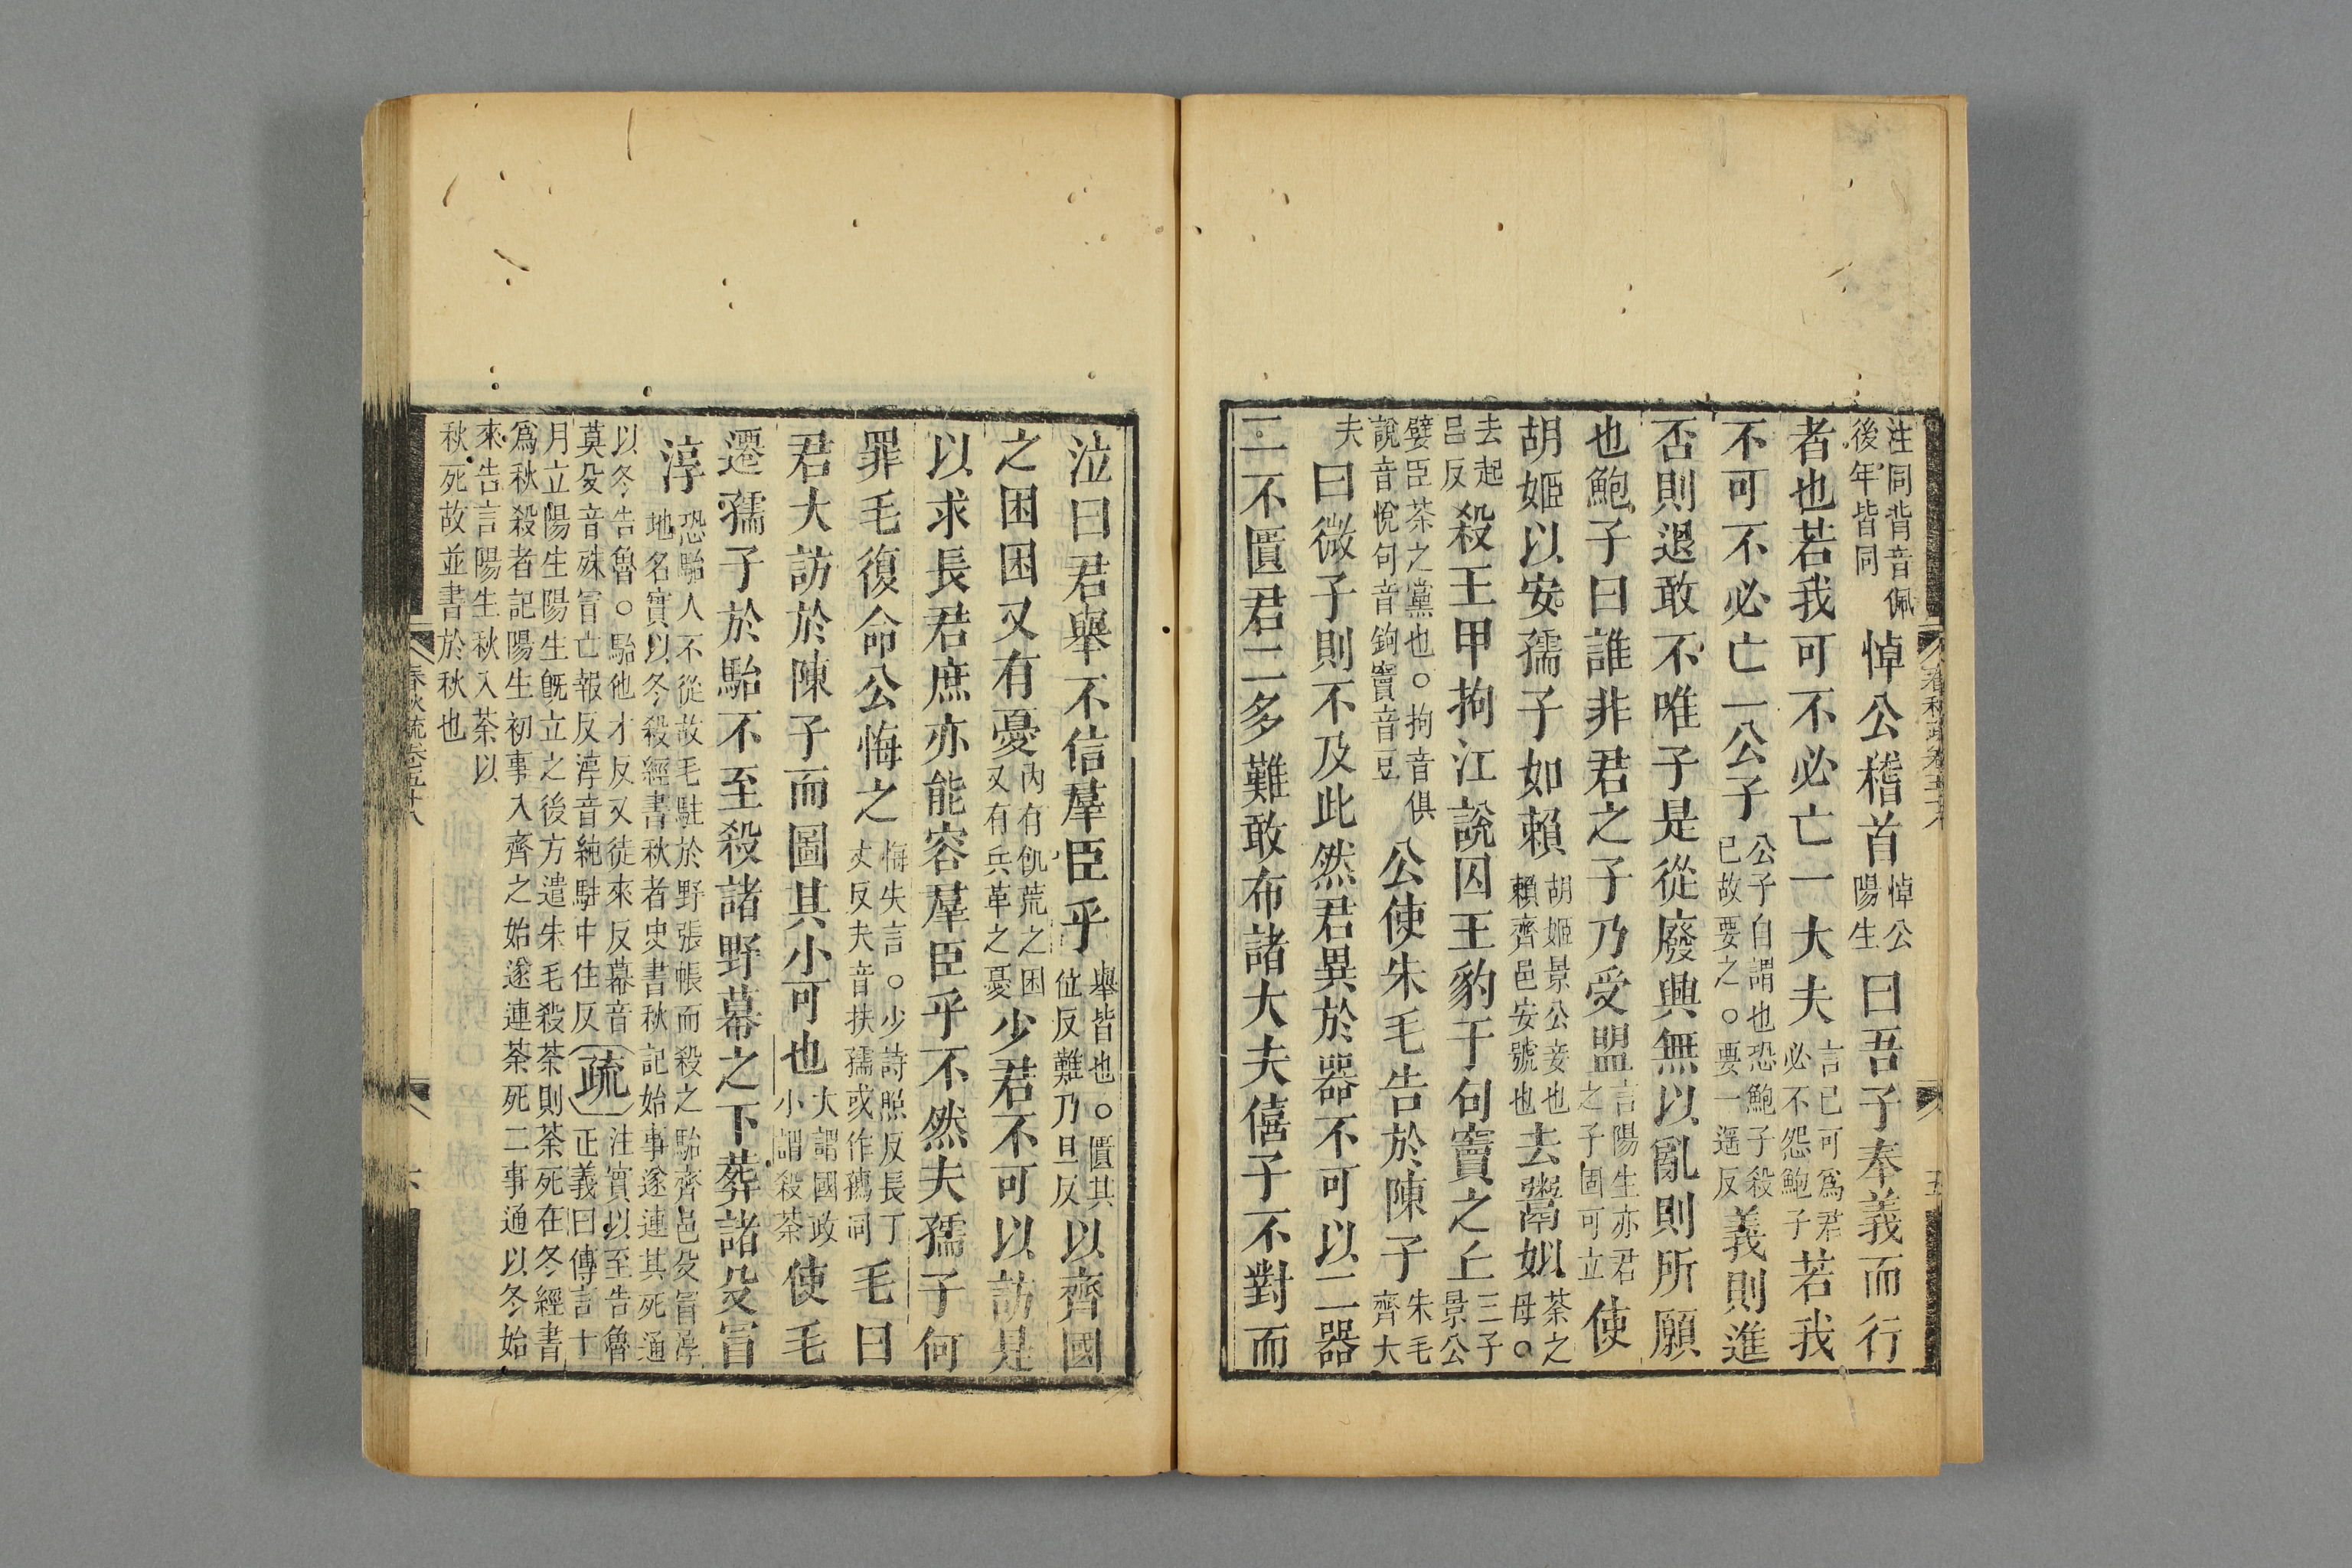 注同背音佩
後年皆同
悼公稽首
悼公
陽生
曰吾子奉義而行
者也若我可不必亡一大夫
言已可爲君
必不怨鮑子
若我
不可不必亡一公子
公子自謂也恐鮑子殺
已故要之○要一遥反
義則進
否則退敢不唯子是從廢興無以亂則所願
也鮑子曰誰非君之子乃受盟
言陽生亦君
之子固可立
使
胡姬以安孺子如賴
胡姬景公妾也
賴齊邑安號也
去鬻姒
荼之
母○
去起
呂反
殺王甲拘江說囚王豹于句竇之丘
三子
景公
嬖臣荼之黨也○拘音俱
說音悅句音鉤竇音豆
公使朱毛告於陳子
朱毛
齊大
夫
曰微子則不及此然君異於器不可以二器
二不匱君二多難敢布諸大夫僖子不對而
泣曰君舉不信羣臣乎
舉皆也○匱其
位反難乃旦反
以齊國
之困困又有憂
內有飢荒之困
又有兵革之憂
少君不可以訪是
以求長君庶亦能容羣臣乎不然夫孺子何
罪毛復命公悔之
悔失言○少詩照反長丁
丈反夫音扶孺或作㺞同
毛曰
君大訪於陳子而圖其小可也
大謂國政
小謂殺荼
使毛
遷孺子於駘不至殺諸野幕之下葬諸殳冒
淳
恐駘人不從故毛駐於野張帳而殺之駘齊邑殳冒淳
地名實以冬殺經書秋者史書秋記始事遂連其死通
以冬告魯○駘他才反又徒來反幕音
莫殳音殊冒亡報反淳音純駐中住反
疏
注實以至告魯
正義曰傳言十
月立陽生陽生既立之後方遣朱毛殺荼則荼死在冬經書
爲秋殺者記陽生初事入齊之始遂連荼死二事通以冬始
來告言陽生秋入荼以
秋死故並書於秋也
春秋疏卷五十八
六